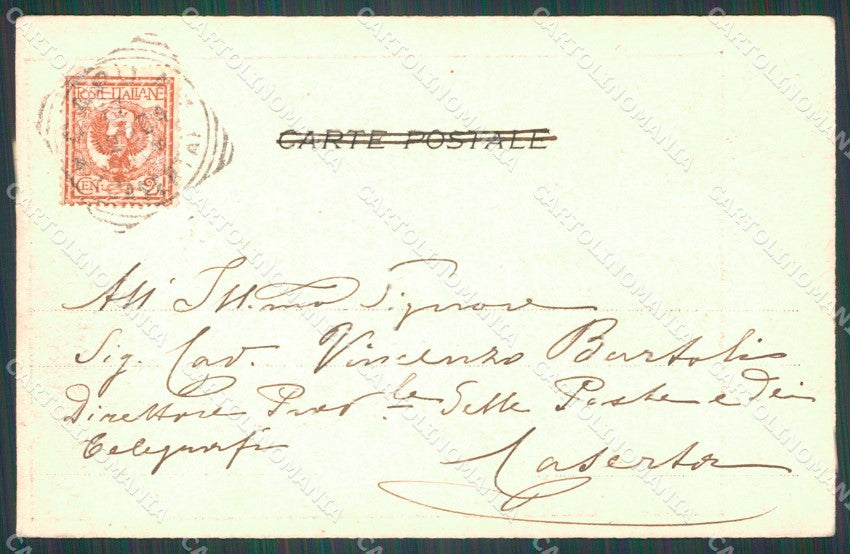 POSTE ITALIANE
CEN. 2
CARTE POSTALE
All' Ill.mo Signore
Sig. Cav. Vincenzo Bartoli
Direttore Prov.le delle Poste e dei
Telegrafi
Caserta
CARTOLINOMANIA